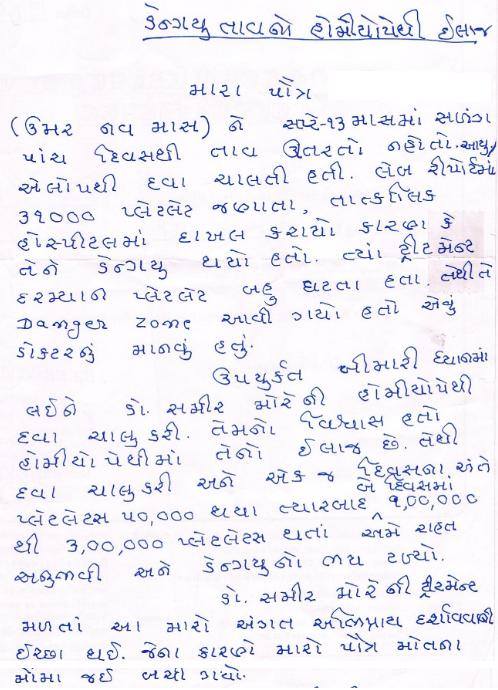 ડેન્ગ્યુ તાવનો હોમીયોપેથી ઈલાજ
મારા પૌત્ર
(ઉંમર નવ માસ) ને સપ્ટે-૧૩ માસમાં સળંગ
પાંચ દિવસથી તાવ ઉતરતો નહોતો. આયુ,
એલોપથી દવા ચાલતી હતી. લેબ રીપોર્ટમાં
૩૧૦૦૦ પ્લેટલેટ જણાતા, તાત્કાલિક
હોસ્પીટલમાં દાખલ કરાયો કારણ કે
તેને ડેન્ગયુ થયો હતો. ત્યાં ટ્રીટમેન્ટ
દરમ્યાન પ્લેટલેટ બહુ ઘટતા હતા. તેથી તે
Danger Zone આવી ગયો હતો એવું
ડોકટરનું માનવું હતું.
ઉપયુર્કત બીમારી ધ્યાનમાં
લઈને ડો. સમીર મોરેની હોમીયોપેથી
દવા ચાલુ કરી. તેમનો વિશ્વાસ હતો
હોમીયોપેથીમાં તેનો ઈલાજ છે. તેથી
દવા ચાલુ કરી અને એક જ દિવસના અંતે
પ્લેટલેટસ ૫૦,૦૦૦ થયા ત્યારબાદ બે દિવસમાં ૧,૦૦,૦૦૦
થી 3,૦૦,૦૦૦ પ્લેટલેટસ થતાં અમે રાહત
અનુભવી અને ડેન્ગયુનો ભય ટળ્યો.
ડો. સમીર મોરેની ટ્રીટમેન્ટ
મળતાં આ મારો અંગત અભિપ્રાય દર્શાવવાની
ઈચ્છા થઈ. જેના કારણે મારો પૌત્ર મોતના
મોંમા જઈ બચી ગયો.